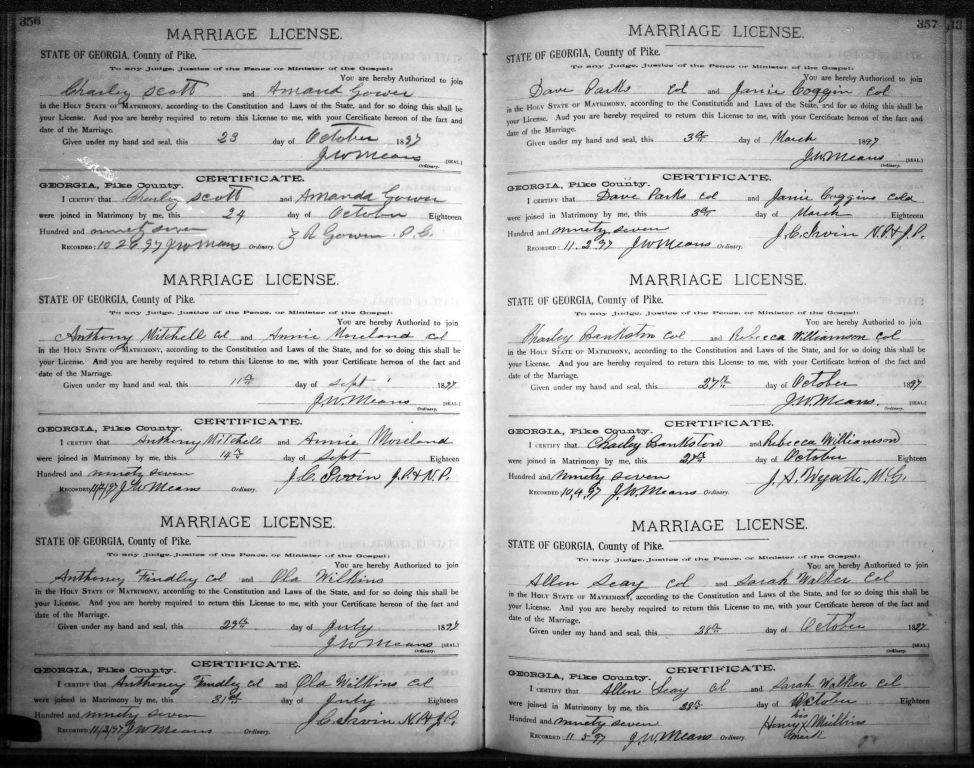 356
MARRIAGE LICENSE.
STATE OF GEORGIA, County of Pike.
To any Judge, Justice of the Peace or Minister of the Gospel:
You are hereby Authorized to join
Charley Scott and Amand Gower
in the HOLY STATE OF MATRIMONY, according to the Constitution and Laws of the State, and for so doing this shall be
your License. And you are hereby required to return this License to me, with your Certificate hereon of the fact and
date of the Marriage.
Given under my hand and seal, this 23 day of October 1897
J W Means [SEAL]
Ordinary.
CERTIFICATE.
GEORGIA, Pike County.
I CERTIFY that Charley Scott and Amanda Gower
were joined in Matrimony by me, this 24 day of October Eighteen
Hundred and ninety seven Z R Gowen P.C.
RECORDED: 10 26 97 J W Means Ordinary.
MARRIAGE LICENSE.
STATE OF GEORGIA, County of Pike.
To any Judge, Justice of the Peace, or Minister of the Gospel:
You are hereby Authorized to join
Anthony Mitchell col and Annie Moreland col
in the HOLY STATE OF MATRIMONY, according to the Constitution and Laws of the State, and for so doing this shall be
your License. And you are hereby required to return this License to me, with your Certificate hereon of the fact and
date of the Marriage.
Given under my hand and seal, this 11th day of Sept 1897
J.W. Means [SEAL]
Ordinary.
CERTIFICATE.
GEORGIA, Pike County.
I CERTIFY that Anthony Mitchell and Annie Moreland
were joined in Matrimony by me, this 14th day of Sept Eighteen
Hundred and ninety seven J. C. Irvin J.P. & N.P.
RECORDED J W Means Ordinary.
MARRIAGE LICENSE.
STATE OF GEORGIA, County of Pike.
To any Judge, Justice of the Peace, or Minister of the Gospel:
You are hereby Authorized to join
Anthoney Findley col and Ola Wilkins
in the HOLY STATE OF MATRIMONY, according to the Constitution and Laws of the State, and for so doing this shall be
your License. And you are hereby required to return this License to me, with your Certificate hereon of the fact and
date of the Marriage.
Given under my hand and seal, this 29th day of July 1897
J W Means [SEAL]
Ordinary.
CERTIFICATE.
GEORGIA, Pike County.
I CERTIFY that Anthoney Findley col and Ola Wilkins col
were joined in Matrimony by me, this 31st day of July Eighteen
Hundred and ninety seven J. C. Irvin N.P. & J.P.
RECORDED J W Means Ordinary.
357 13
MARRIAGE LICENSE.
STATE OF GEORGIA, County of Pike.
To any Judge, Justice of the Peace or Minister of the Gospel:
You are hereby Authorized to join
Dave Parks col and Janie Coggin col
in the HOLY STATE OF MATRIMONY, according to the Constitution and Laws of the State, and for so doing this shall be
your License. And you are hereby required to return this License to me, with your Certificate hereon of the fact and
date of the Marriage.
Given under my hand and seal, this 3rd day of March 1897
J.W. Means [SEAL]
Ordinary.
CERTIFICATE.
GEORGIA, Pike County.
I CERTIFY that Dave Parks col and Janie Coggins cold
were joined in Matrimony by me, this 3rd day of March Eighteen
Hundred and ninety seven J. C. Irvin N.P. & J.P.
RECORDED: 11.2.97 J W Means Ordinary.
MARRIAGE LICENSE.
STATE OF GEORGIA, County of Pike.
To any Judge, Justice of the Peace, or Minister of the Gospel:
You are hereby Authorized to join
Charley Bankston col and Rebecca Williamson col
in the HOLY STATE OF MATRIMONY, according to the Constitution and Laws of the State, and for so doing this shall be
your License. And you are hereby required to return this License to me, with your Certificate hereon of the fact and
date of the Marriage.
Given under my hand and seal, this 27th day of October 1897
J.W. Means. [SEAL]
Ordinary.
CERTIFICATE.
GEORGIA, Pike County.
I CERTIFY that Charley Bankston and Rebecca Williamson
were joined in Matrimony by me, this 27th day of October Eighteen
Hundred and ninety seven J. S. Wyatte M.G.
RECORDED 10,4,97 J. W. Means Ordinary.
MARRIAGE LICENSE.
STATE OF GEORGIA, County of Pike.
To any Judge, Justice of the Peace, or Minister of the Gospel:
You are hereby Authorized to join
Allen Seay col and Sarah Walker col
in the HOLY STATE OF MATRIMONY, according to the Constitution and Laws of the State, and for so doing this shall be
your License. And you are hereby required to return this License to me, with your Certificate hereon of the fact and
date of the Marriage.
Given under my hand and seal, this 28th day of October 1897
[SEAL]
CERTIFICATE.
GEORGIA, Pike County.
I CERTIFY that Allen Seay col and Sarah Walker col
were joined in Matrimony by me, this 28th day of October Eighteen
his
Hundred and ninety seven Henry X
mark
RECORDED 11 5 97 J. W. Means Ordinary.